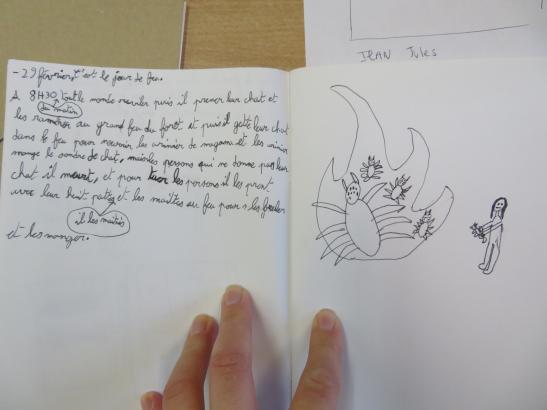 JEAN Jules
- 29 févrierst c'est le jour de feu.
A 8H30 tout le monde reveiller puis il prener leur chat et
du matin
les ramener au grand feu du forêt et puis il gette leur chat
dans le feu pour nourrir les arinier de magama et les arinier
mange le sondre de chat, mais les persons qui ne donne pas leur
chat il meurt, et pour tuer les persons il les prent
avec leur huit pattes et les maittes au feu pour les bruler
il les maitries
et les manger.